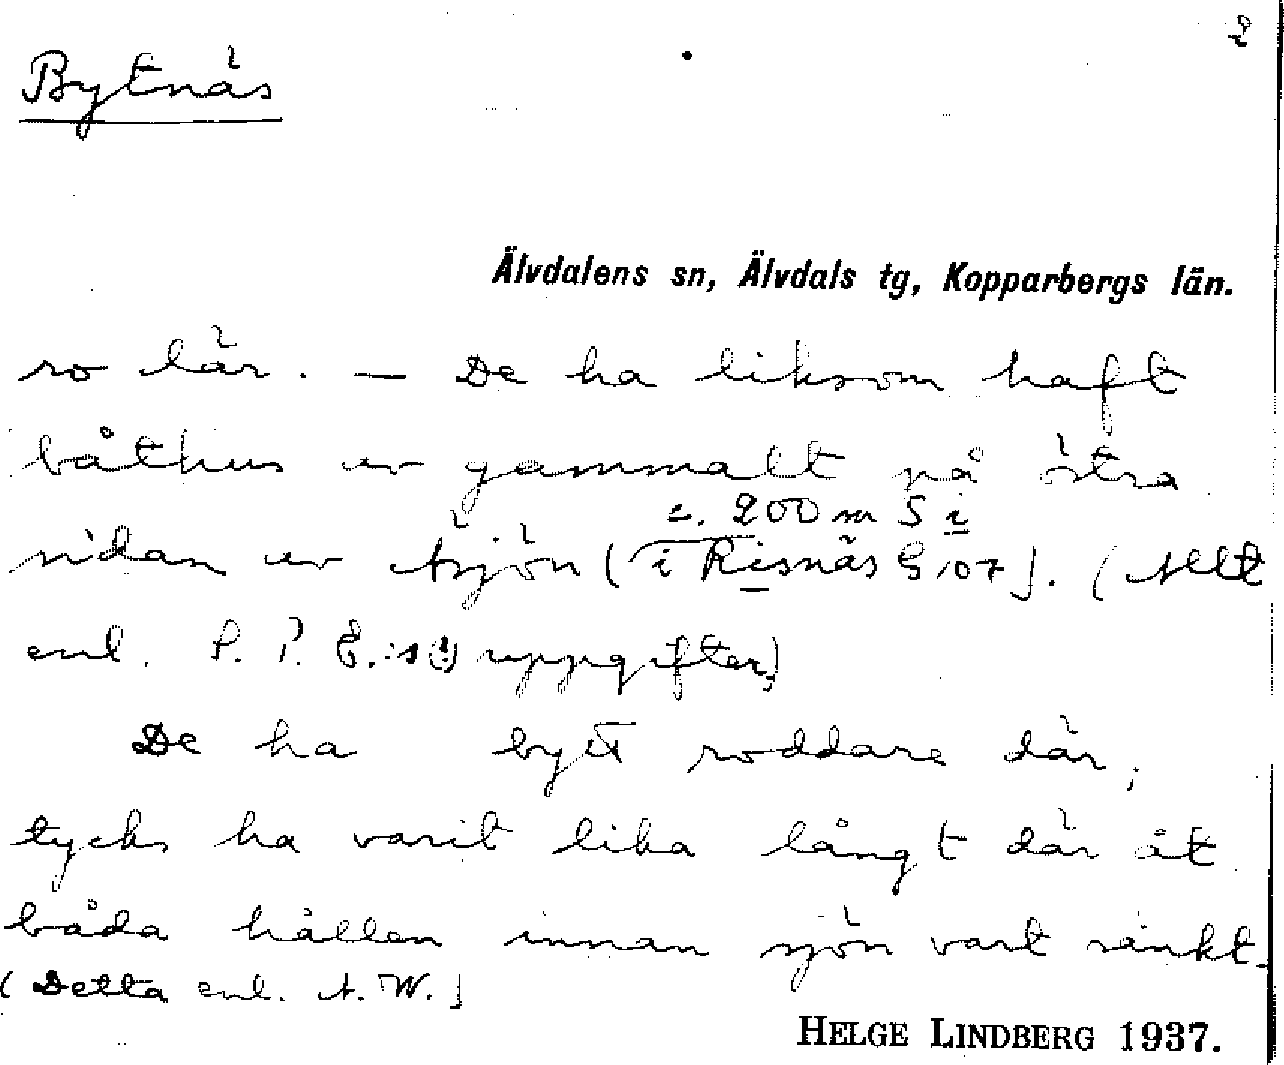 2
Bytnäs
Älvdalens sn, Älvdals tg, Kopparbergs län.
ro där. — De ha liksom haft
båthus av gammalt på östra
c. 200 m S i
sidan av Åsjön (i Risnäs G 107). (Allt
enl. P. P. E.:s (!) uppgifter)
De ha bytt roddare där,
tycks ha varit lika långt där åt
båda hållen innan sjön vart sänkt.
(Detta enl. A. W.)
HELGE LINDBERG 1937.